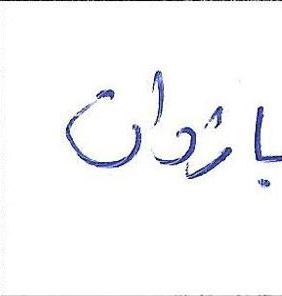 باژوان